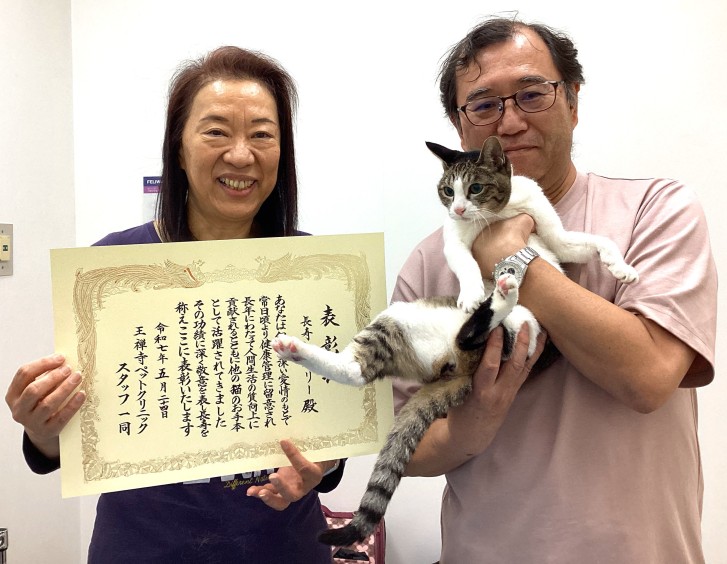 表彰
長寿 リー殿
あなたは 深い愛情のもとで
常日頃より健康管理に留意され
長年にわたって人間生活の質向上に
貢献されるとともに他の猫のお手本
として活躍されてきました
その功績に深く敬意を表し長寿を
称えここに表彰いたします
令和七年 五月二十四日
王禅寺ペットクリニック
スタッフ一同
FELIW
Different